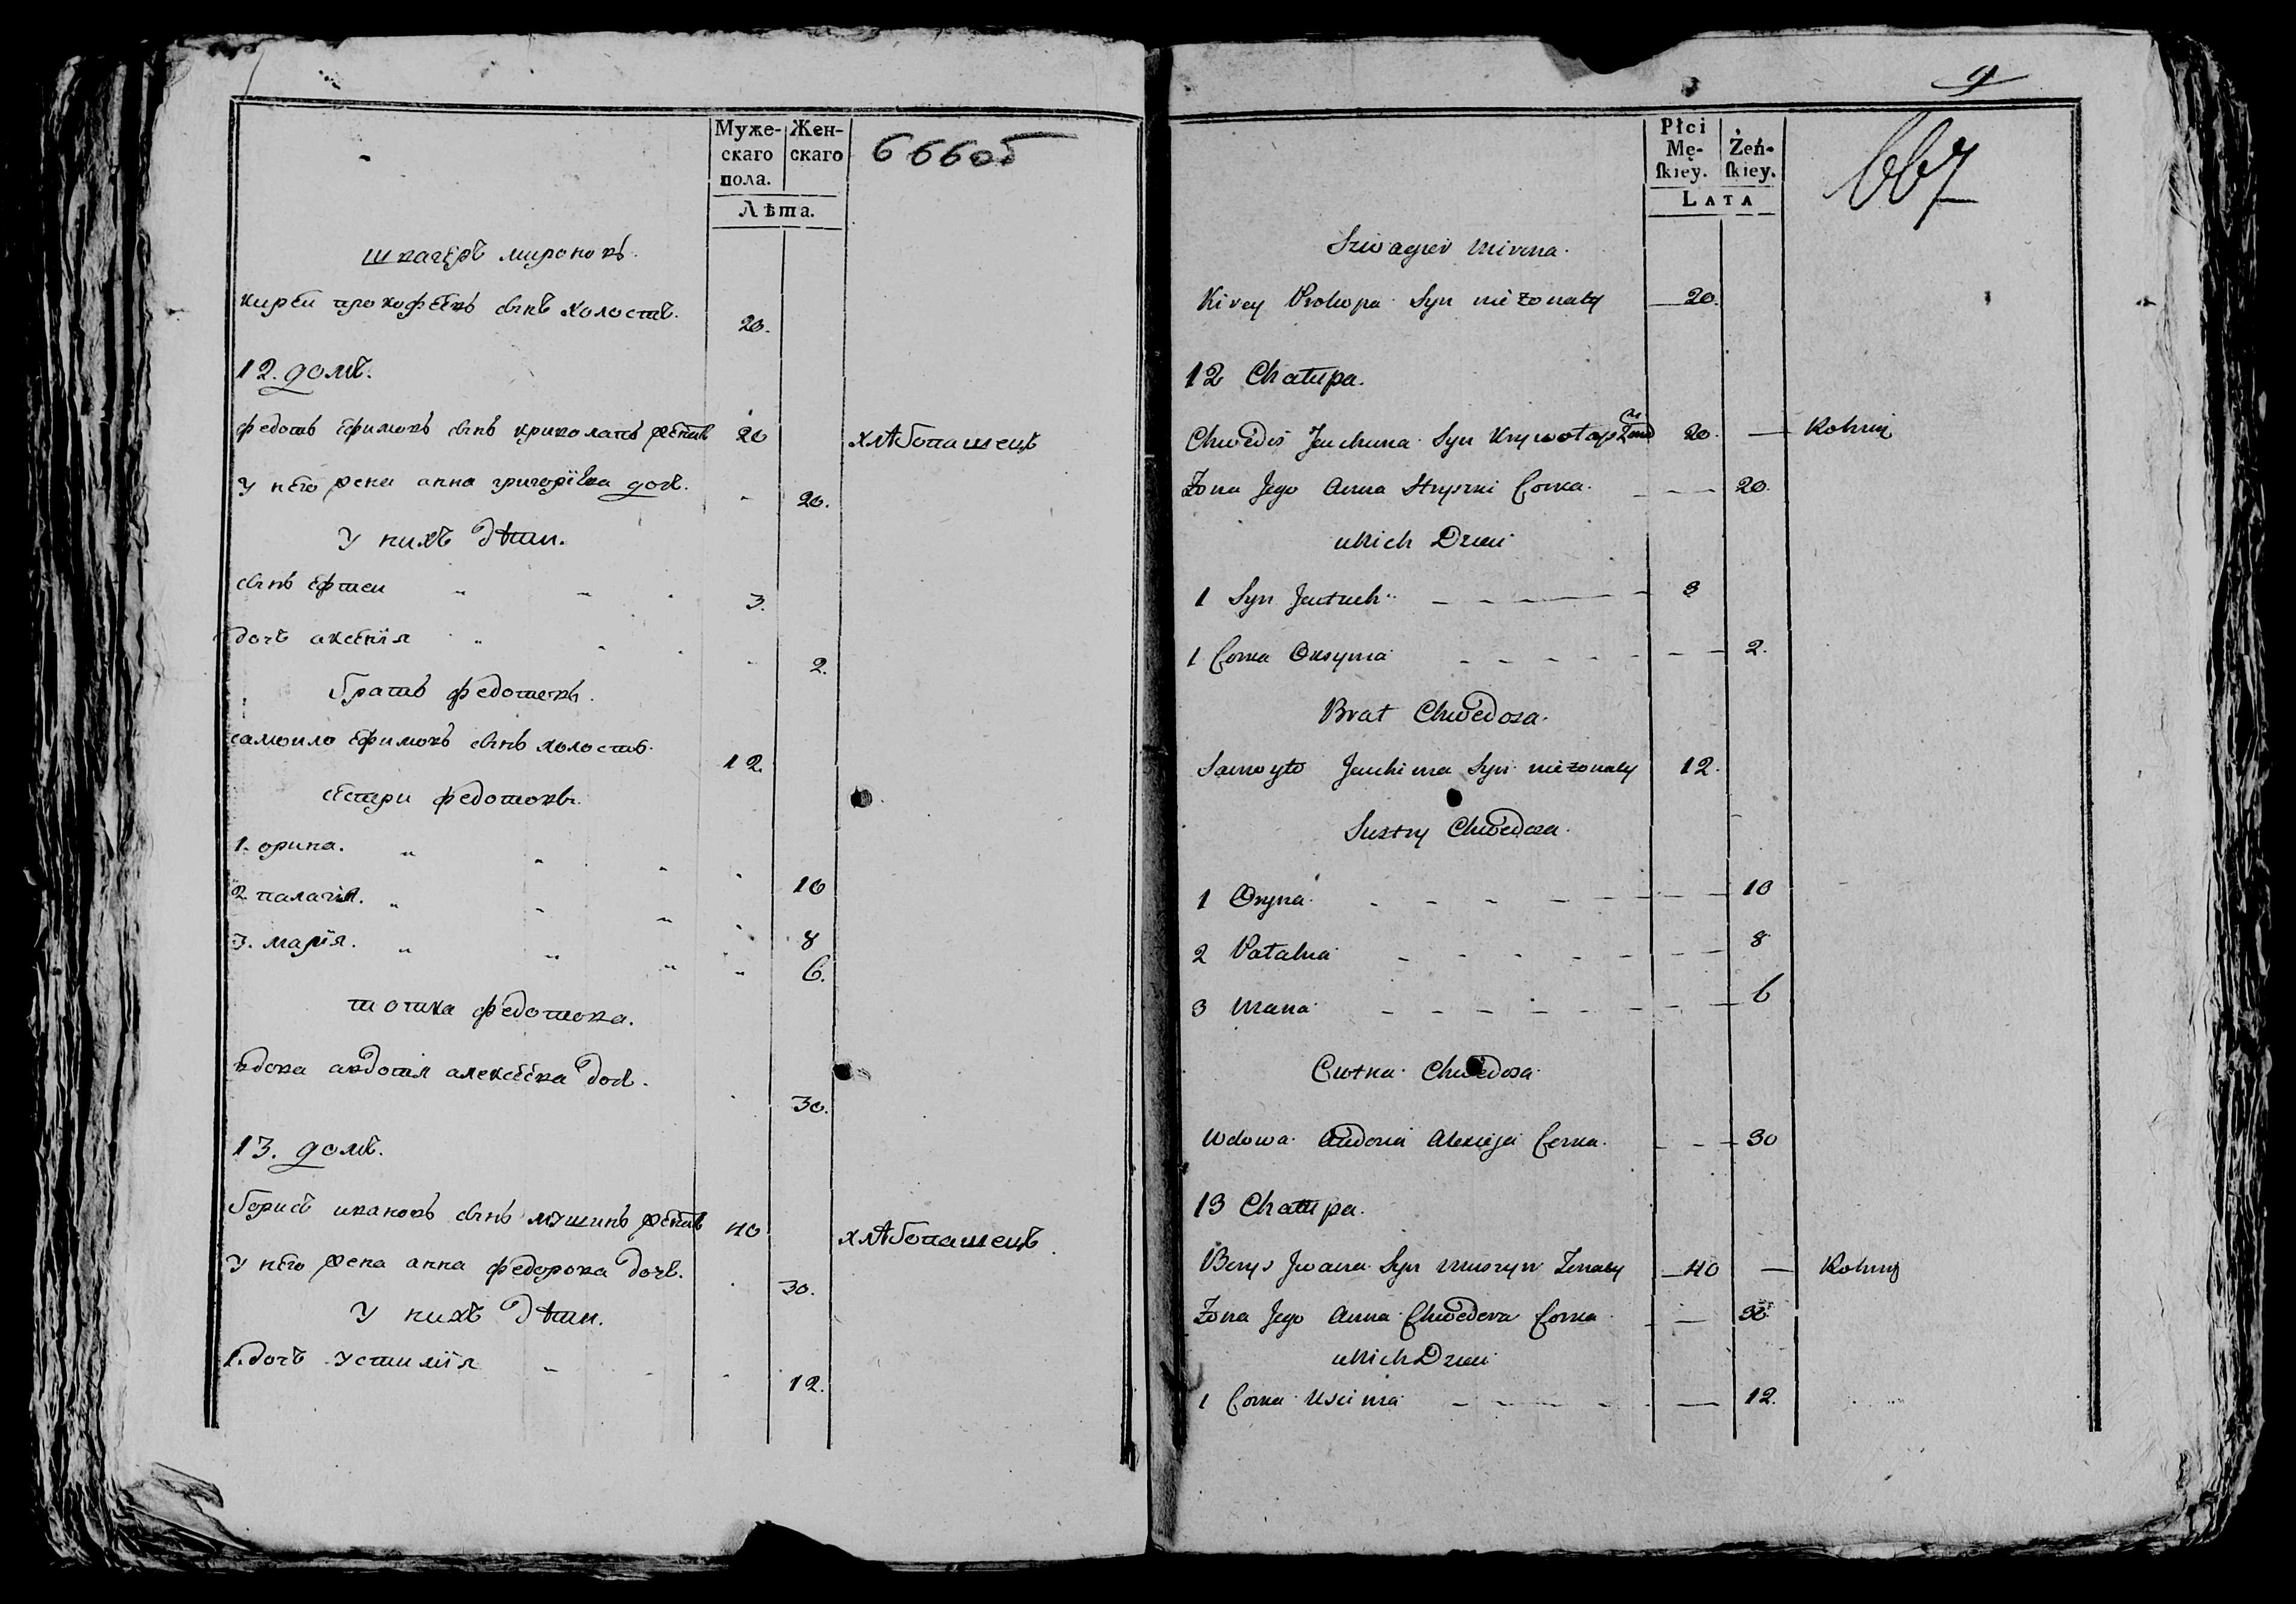 Муже-
скаго
пола.
Жен-
скаго
Лѣта.
666об
шкагеръ миронокъ.
кирей прокофѣевъ сынъ холостъ. 20.
12. домъ.
федотъ ефимовъ сынъ криволапъ женатъ 20 хлѣбопашецъ
у него жена анна григорїева дочь. 20.
У нихъ дѣти.
сынъ ефтеи 3.
дочь аксенїя 2.
братъ федотовъ.
самоило ефимовъ сынъ холостъ. 12.
сестри федотовы.
1. орина. 10
2 палагїя. 8
3. марїя. 6.
тотка федотова.
вдова авдотїя алексеева дочь. 30.
13. домъ.
борисъ ивановъ сынъ мушинъ женатъ 40 хлѣбопашецъ.
У него жена анна федорова дочь. 30.
У нихъ дѣти.
1. дочь устимїя 12.
9
667
Płci
Mę-
skiey.
Żeń-
skiey.
LATA
Szwagier Mirona.
Kirey Prokopa Syn nieżonaty 20.
12 Chałupa.
Chwedos Jauchima Syn Krywołap Żonaty 20. Rolniy
Żona Jego Anna Hryszki Corka. 20.
u Nich Dzieci
1 Syn Jautuch 3
1 Corka Oksynia 2.
Brat Chwedosa.
Samoyło Jauchima Syn nieżonaty 12.
Siostry Chwedosa.
1 Oryna 10
2 Patahia 8
3 Maria 6
Ciotka Chwedosa
Wdowa Audocia Alexieja Corka. 30
13 Chałupa.
Borys Jwana Syn Muszyn Żonaty 40 Rolniy
Żona Jego Anna Chwedora Corka 30
u Nich Dzieci
1 Corka Uścinia 12.